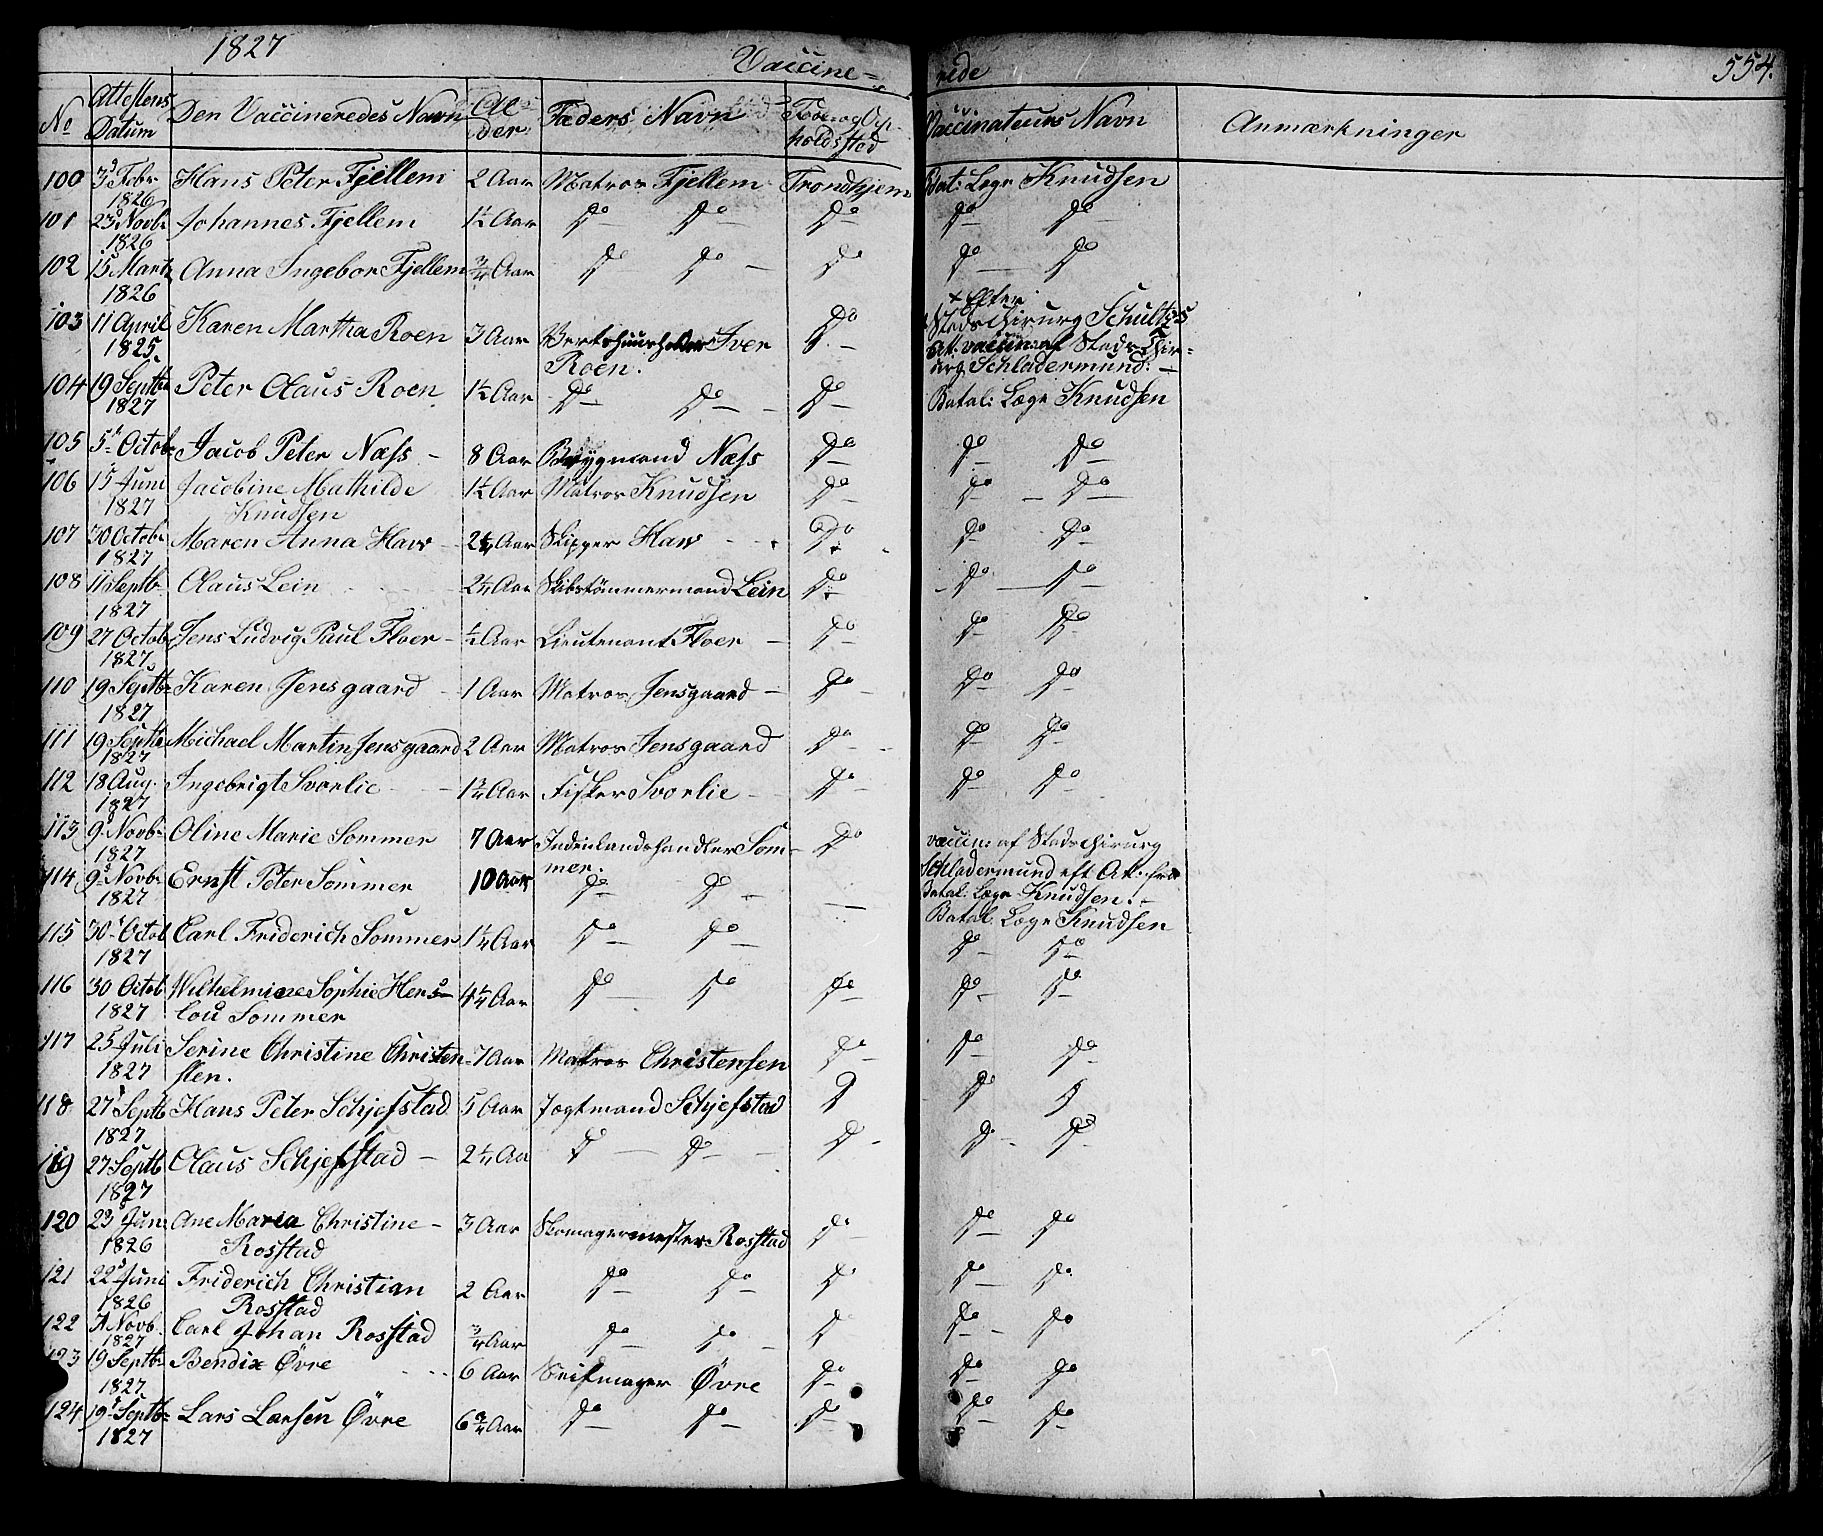 1827 Vaccine= rede 554.
No Attestens Datum Den Vaccineredes Navn Alder Faders Navn Føde og Opholdsstad Vaccinateurs Navn Anmærkninger
100 3 Febr 1826 Hans Peter Fjellem 2 Aar Matros Fjellem Trondhjem Bat: Læge Knudsen
101 23 Novbr 1826 Johannes Fjellem 1¼ Aar Do Do Do Do Do
102 15 Martz 1826 Anna Ingebor Fjellem ¾ Aar Do Do Do Do Do
103 11 April 1825 Karen Martha Roen 3 Aar Vertshuusholder Iver Roen. Do + Efter Stadschirurg Schultzs Att. vaccin: af Stadschirurg Schladermund:
104 19 Septbr 1827 Peter Olaus Roen 1½ Aar Do Do Do Batal: Læge Knudsen
105 5 Octobr Jacob Peter Næss 8 Aar Brygmand Næss Do Do Do
106 15 Juni 1827 Jacobine Mathilde Knudsen 1¼ Aar Matros Knudsen Do Do Do
107 30 Octobr 1827 Maren Anna Havs Aar Skipper Havs Do Do Do
108 11 Septbr 1827 Olaus Lein 2½ Aar Skibstømmermand Lein Do Do Do
109 27 Octob 1827 Jens Ludvig Paul Floer ½ Aar Lieutenant Floer Do Do Do
110 19 Septbr 1827 Karen Jensgaard 1 Aar Matros Jensgaard Do Do Do
111 19 Septbr 1827 Michael Martin Jensgaard 2 Aar Matros Jensgaard Do Do Do
112 18 Aug. 1827 Ingebrigt Svorlie 1¾ Aar Fisker Svorlie Do Do Do
113 9 Novbr 1827 Oline Marie Sommer 7 Aar Indenlandshandler Sommer. Do vaccin: af Stadschirurg
114 9 Novbr 1827 Ernst Peter Sommer 10 Aar Do Do — Schladermund eft At. fra Batal: Læge Knudsen.
115 30 Octob 1827 Carl Friderich Sommer 1¼ Aar Do Do Batal. Læge Knudsen Do Do
116 30 Octob 1827 Wilhelmine Sophie Hen Lou Sommer 4¼ Aar Do Do Do Do Do
117 25 Juli 1827 Serine Christine Christensten. 7 Aar Matros Christensen Do Do Do
118 27 Septb 1827 Hans Peter Schjefstad 5 Aar Jogtmand Schjefstad D Do D
119 27 Septb 1827 Olaus Schjefstad 2¼ Aa Do Do D D Do
120 23 Jun 1826 Ane Maria Christine Rosstad 3 Aar Skomagermester Rosstad Do Do Do
121 22 Juni 1826 Friderich Christian Rosstad 2 Aar Do Do Do Do Do
122 7 Novb. 1827 Carl Johan Rosstad ¾ Aar Do Do Do Do Do
123 19 Septbr 1827 Bendix Øvre 6 Aar Svifmager Øvre Do Do Do
124 19 Septbr 1827 Lars Larsen Øvre 6¾ Aar Do Do Do Do Do